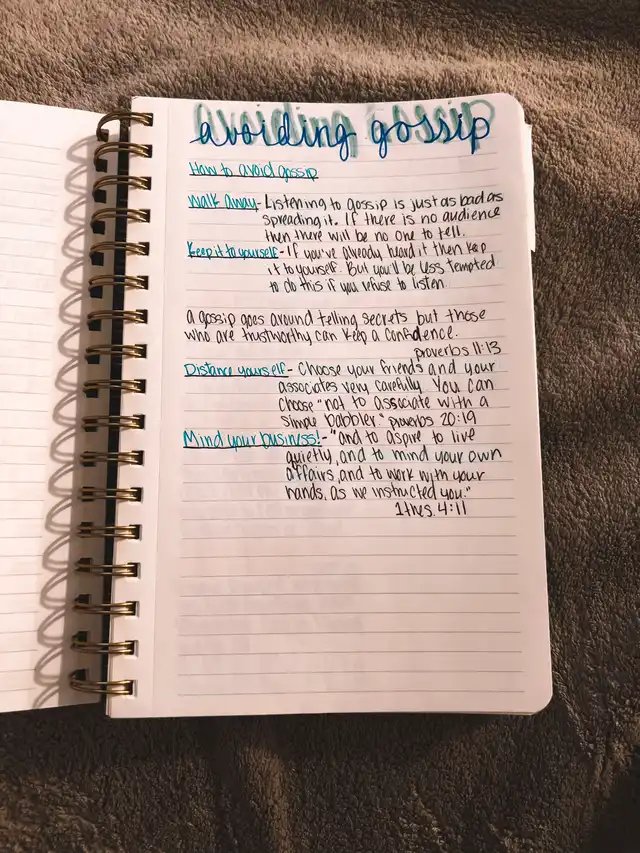 avoiding gossip
How to avoid gossip
Walk away- Listening to gossip is just as bad as
spreading it. If there is no audience
then there will be no one to tell.
Keep it to yourself - If you've already heard it then keep
it to yourself. But you'll be less tempted
to do this if you refuse to listen.
a gossip goes around telling secrets but those
who are trustworthy can keep a confidence.
proverbs 11:13
Distance yourself - Choose your friends and your
associates very carefully. You can
choose "not to associate with a
simple babbler." proverbs 20:19
Mind your business! - "and to aspire to live
quietly, and to mind your own
affairs, and to work with your
hands, as we instructed you."
1 thes. 4:11